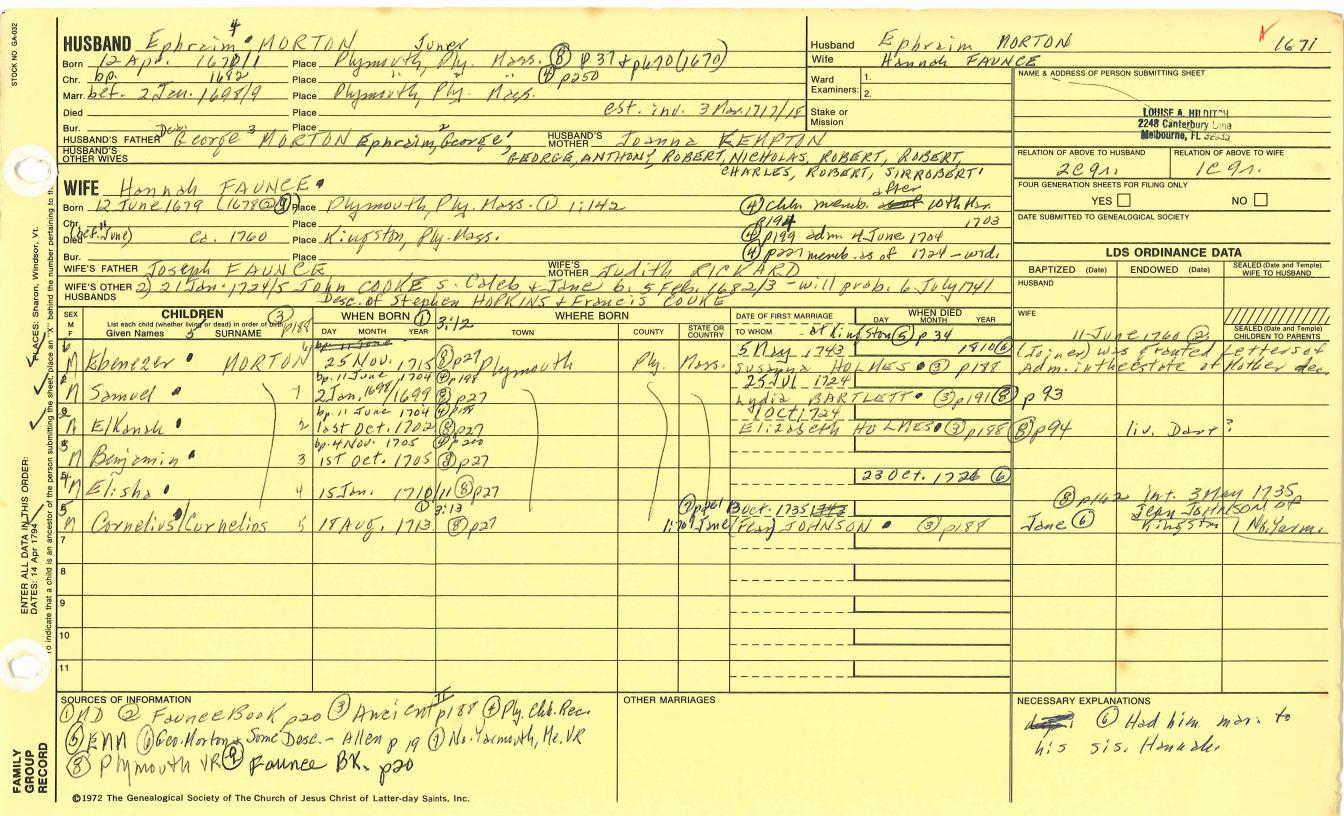 STOCK NO. GA-032
4
HUSBAND Ephraim MORTON Juner
Born 12 Apr. 1670/1 Place Plymouth, Ply. Mass. (8) p37 + p670 (1670)
Chr. bp. 1682 Place " " " (4) p250
Marr. bef. 2 Jan. 1698/9 Place Plymouth, Ply. Mass.
Died Place est. inv. 3 Mar. 1717/18
Bur. Place
HUSBAND'S FATHER George 3 MORTON Ephraim, 2 George' HUSBAND'S MOTHER Joanna KEMPTON
HUSBAND'S OTHER WIVES GEORGE, ANTHONY, ROBERT, NICHOLAS, ROBERT, ROBERT,
CHARLES, ROBERT, SIR ROBERT'
Husband Ephraim MORTON 1671
Wife Hannah FAUNCE
Ward Examiners: 1.
2.
Stake or Mission
NAME & ADDRESS OF PERSON SUBMITTING SHEET
LOUISE A. HILDITCH
2248 Canterbury Lane
Melbourne, FL
RELATION OF ABOVE TO HUSBAND RELATION OF ABOVE TO WIFE
2C gr. 1C gr.
FOUR GENERATION SHEETS FOR FILING ONLY
YES NO
DATE SUBMITTED TO GENEALOGICAL SOCIETY
LDS ORDINANCE DATA
BAPTIZED (Date) ENDOWED (Date) SEALED (Date and Temple) WIFE TO HUSBAND
HUSBAND
WIFE
SEALED (Date and Temple) CHILDREN TO PARENTS
WIFE Hannah FAUNCE
after
Born 12 June 1679 (1678 (2) (9)) Place Plymouth, Ply. Mass. (1) 1:142 (4) chh. memb. 10th Mar.
Chr. Place p194 1703
(4) p199 adm 4 June 1704
Died (bef. 11 June) Ca. 1760 Place Kingston, Ply. Mass.
Bur. Place (4) p221 memb. as of 1724 - wid.
WIFE'S FATHER Joseph FAUNCE WIFE'S MOTHER Judith RICKARD
WIFE'S OTHER HUSBANDS 2) 21 Jan. 1724/5 John COOKE s. Caleb + Jane b. 5 Feb. 1682/3 - will prob. 6 July 1741
Desc. of Stephen HOPKINS + Francis COOKE
SEX M F CHILDREN (3) p188
List each child (whether living or dead) in order of birth
Given Names SURNAME
WHEN BORN (1) 3:12 WHERE BORN
DAY MONTH YEAR TOWN COUNTY STATE OR COUNTRY
DATE OF FIRST MARRIAGE WHEN DIED
TO WHOM DAY MONTH YEAR
at Kingston (5) p34
11 June 1760 (2)
6 M Ebenezer MORTON 6 bp. 11 June 25 Nov. 1715 (8) p27 Plymouth Ply. Mass. 5 May 1743 1810 (6)
Susanna HOLMES (3) p188
(Joiner) was granted Letters of
Adm. in the estate of Mother dec.
M Samuel 1 bp. 11 June 1704 (4) p198
2 Jan. 1698/1699 (8) p27 25 Jul 1724
Lydia BARTLETT (3) p191 (8) p93
2 M Elkanah 2 bp. 11 June 1704 (4) p198
last Oct. 1702 (8) p27 1 Oct 1724
Elizabeth HOLMES (3) p188 (8) p94 liv. Dart?
3 M Benjamin 3 bp. 4 Nov. 1705 (4) p200
1st Oct. 1705 (8) p27
4 M Elisha 4 15 Jan. 1710/11 (8) p27 23 Oct. 1726 (6)
5 M Cornelius/Curnelios 5 (1) 3:13
18 Aug. 1713 (8) p27 Oct. 1735
Jane (Jean) JOHNSON (3) p188
(8) p162 int. 3 May 1735
Jean JOHNSON of
Jane (6) Kingston No. Yarm.
7
8
9
10
11
ENTER ALL DATA IN THIS ORDER:
DATES: 14 Apr 1794 PLACES: Sharon, Windsor, Vt.
To indicate that a child is an ancestor of the person submitting the sheet, place an "X" behind the number pertaining to
FAMILY GROUP RECORD
SOURCES OF INFORMATION
(1) MD (2) Faunce Book p20 (3) Ancient II p188 (4) Ply. Chh. Rec.
(5) (6) Geo. Morton + Some Desc. - Allen p 19 (7) No. Yarmouth, Me. VR
(8) Plymouth VR (9) Faunce BK. p20
OTHER MARRIAGES
NECESSARY EXPLANATIONS
(6) Had him mar. to
his sis. Hannah.
©1972 The Genealogical Society of The Church of Jesus Christ of Latter-day Saints, Inc.